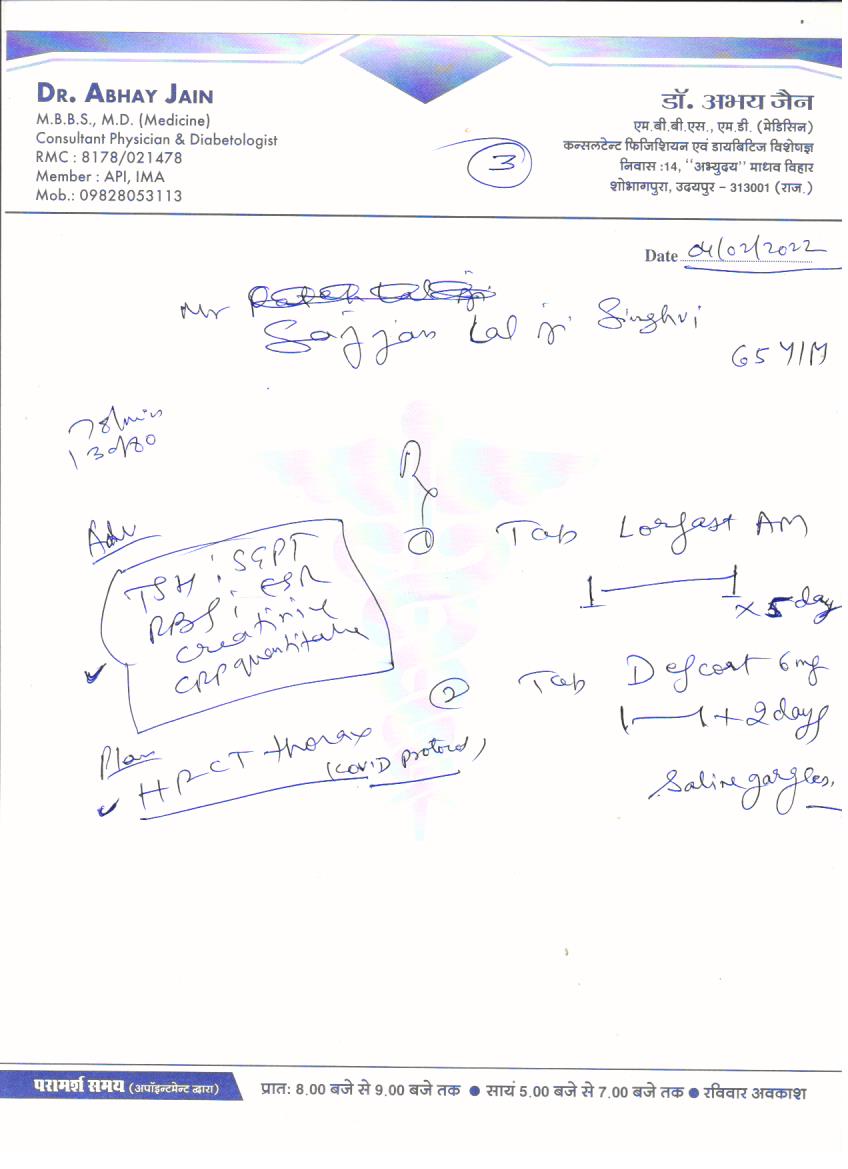 DR. ABHAY JAIN
M.B.B.S., M.D. (Medicine)
Consultant Physician & Diabetologist
RMC : 8178/021478
Member : API, IMA
Mob.: 09828053113
3
डॉ. अभय जैन
एम.बी.बी.एस., एम.डी. (मेडिसिन)
कन्सलटेन्ट फिजिशियन एवं डायबिटिज विशेषज्ञ
निवास :14, "अभ्युदय" माधव विहार
शोभागपुरा, उदयपुर – 313001 (राज.)
Date 01/02/2022
Mr
Sajjan Lal ji Singhvi
65 Y/M
78/min
130/80
Rx
Adv
TSH : SGPT
RBS : ESR
Creatinine
CRP quantitative
Plan
HRCT thorax
(COVID protocol)
① Tab Lorfast AM
1—1 x 5 day
② Tab Defcort 6 mg
1—1 + 2 days
Saline gargles.
परामर्श समय (अपॉइन्टमेन्ट द्वारा)
प्रात: 8.00 बजे से 9.00 बजे तक ● सायं 5.00 बजे से 7.00 बजे तक ● रविवार अवकाश